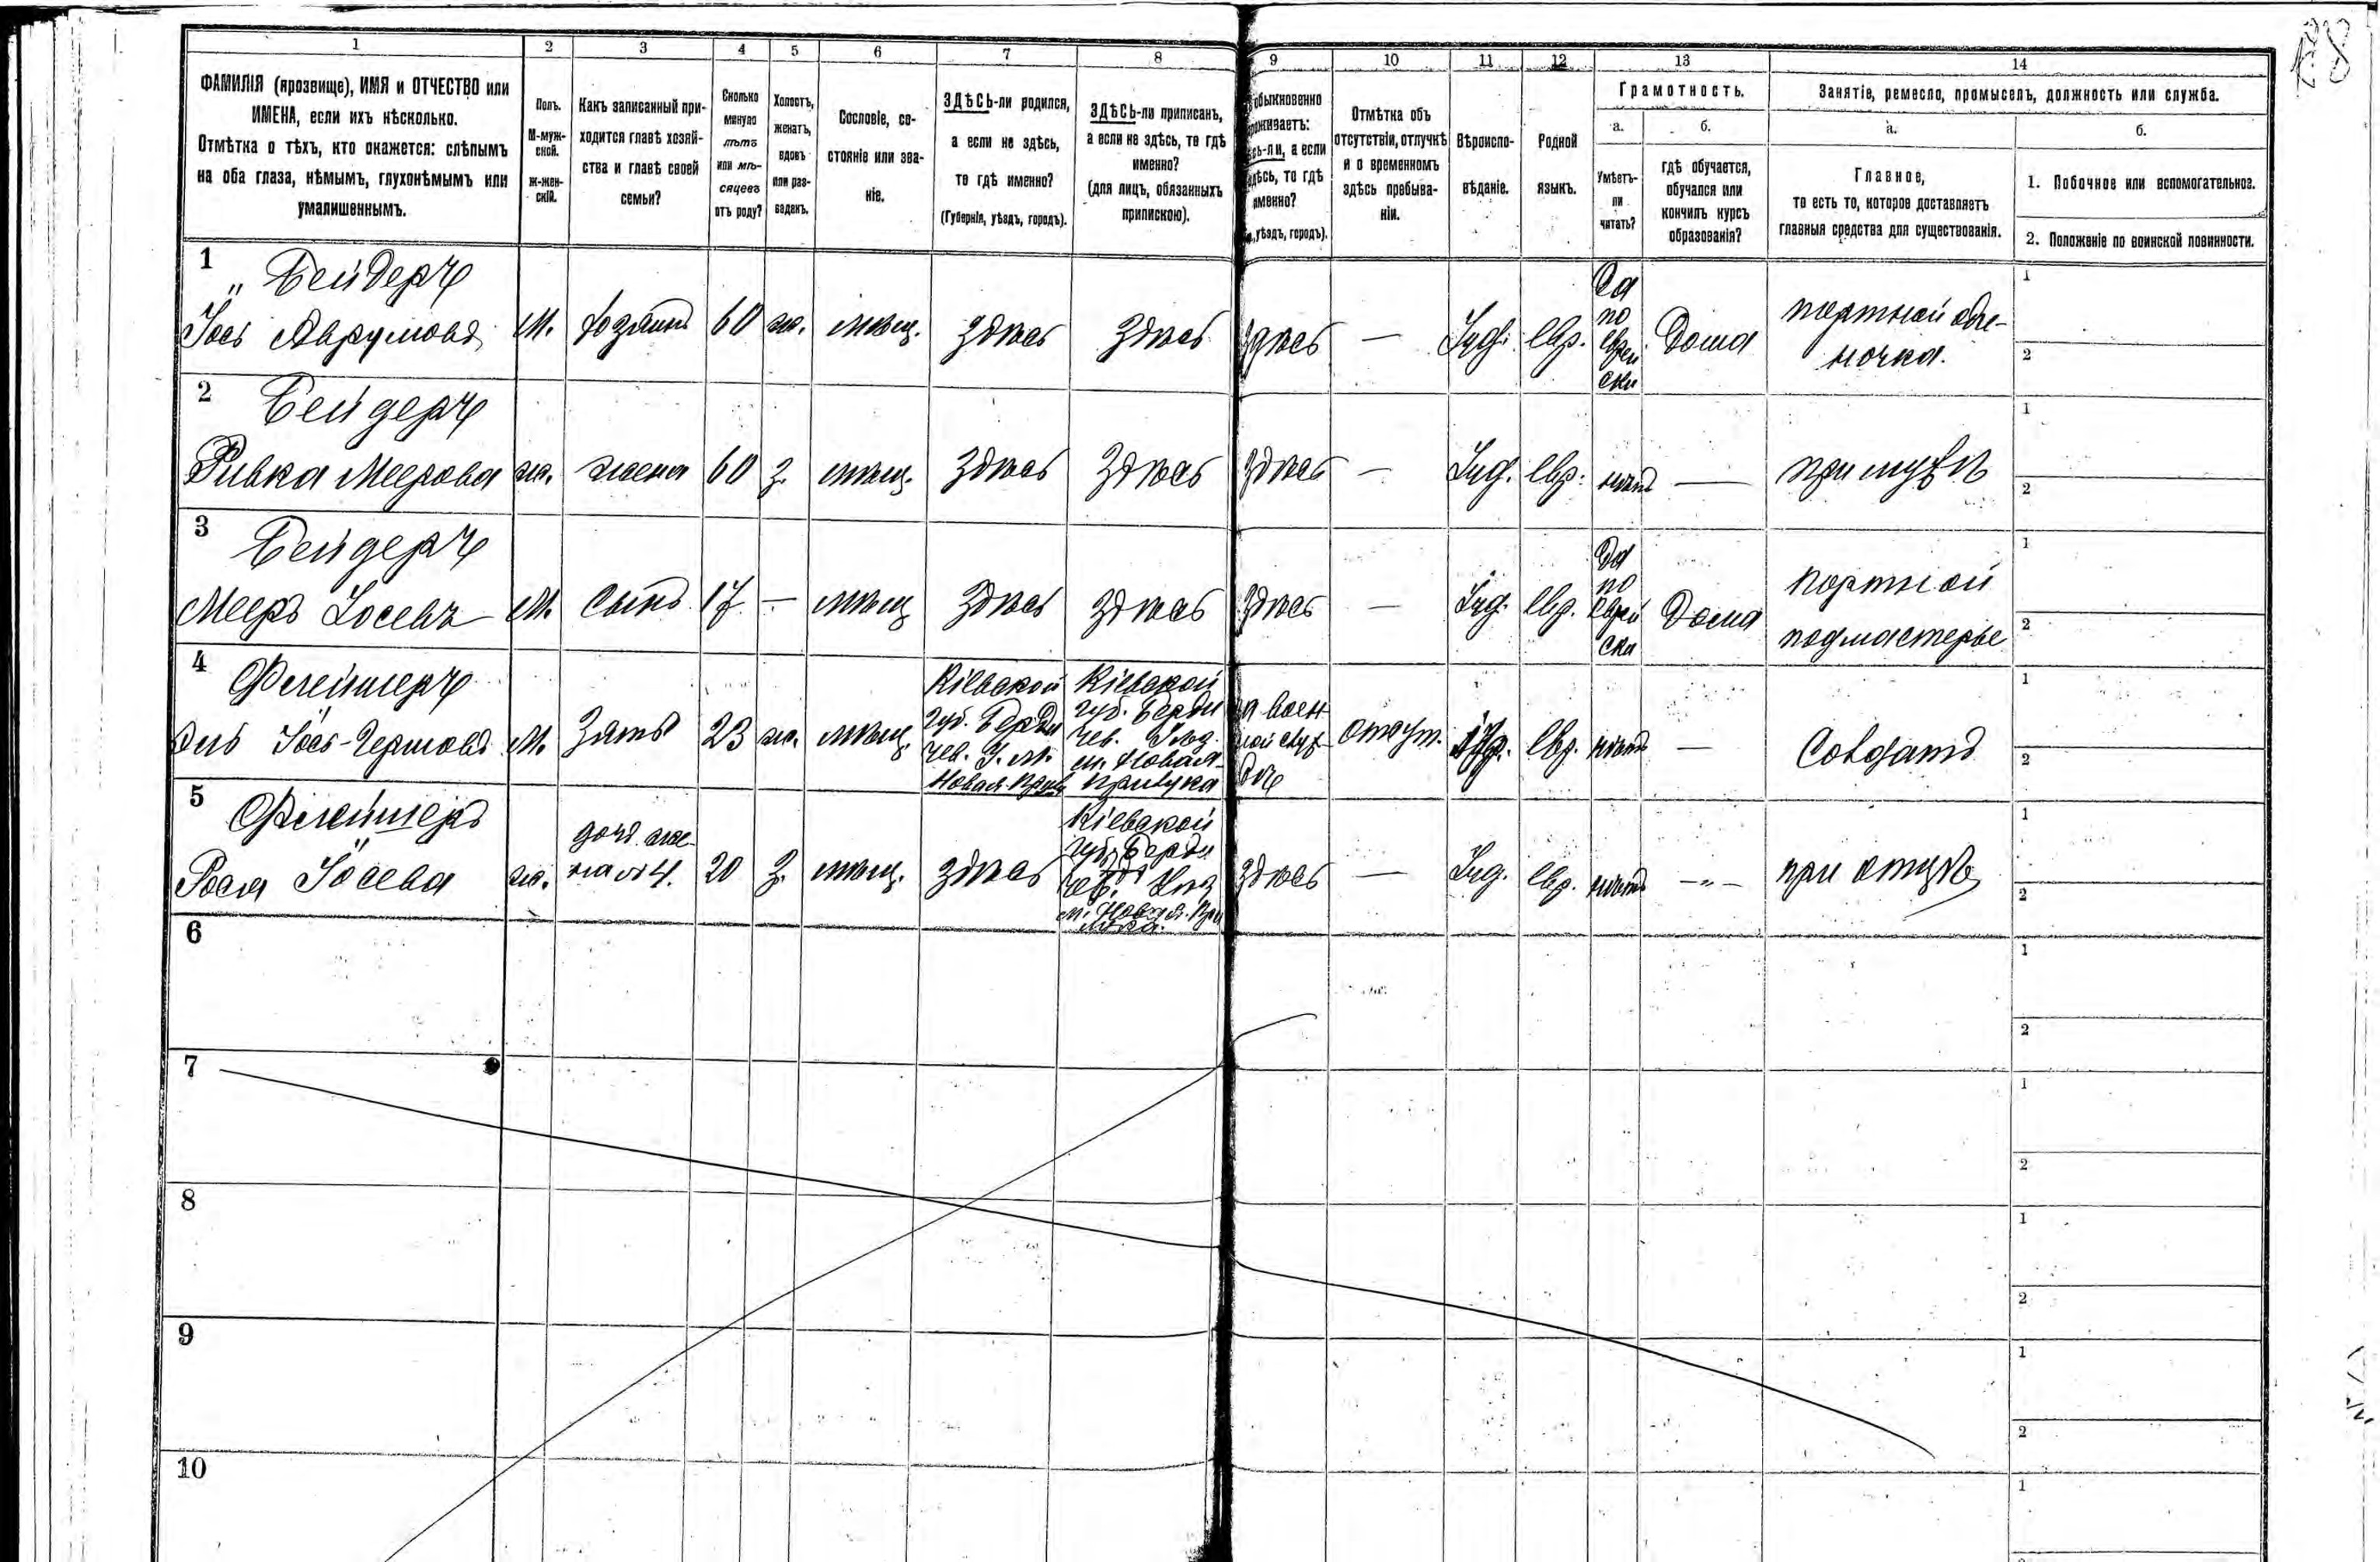 1 2 3 4 5 6 7 8 9 10 11 12 13 14
ФАМИЛІЯ (прозвище), ИМЯ и ОТЧЕСТВО или
ИМЕНА, если ихъ нѣсколько.
Отмѣтка о тѣхъ, кто окажется: слѣпымъ
на оба глаза, нѣмымъ, глухонѣмымъ или
умалишеннымъ.
Полъ.
М-муж-
ской.
Ж-жен-
скій.
Какъ записанный при-
ходится главѣ хозяй-
ства и главѣ своей
семьи?
Сколько
минуло
лѣтъ
или мѣ-
сяцевъ
отъ роду?
Холостъ,
женатъ,
вдовъ
или раз-
веденъ.
Сословіе, со-
стояніе или зва-
ніе.
ЗДѢСЬ-ли родился,
а если не здѣсь,
то гдѣ именно?
(Губернія, уѣздъ, городъ).
ЗДѢСЬ-ли приписанъ,
а если не здѣсь, то гдѣ
именно?
(для лицъ, обязанныхъ
припискою).
обыкновенно
проживаетъ:
сь-ли, а если
здѣсь, то гдѣ
именно?
уѣздъ, городъ).
Отмѣтка объ
отсутствіи, отлучкѣ
и о временномъ
здѣсь пребыва-
ніи.
Вѣроиспо-
вѣданіе.
Родной
языкъ.
Грамотность.
а.
Умѣетъ-
ли
читать?
б.
гдѣ обучается,
обучался или
кончилъ курсъ
образованія?
Занятіе, ремесло, промыселъ, должность или служба.
а.
Главное,
то есть то, которое доставляетъ
главныя средства для существованія.
б.
1. Побочное или вспомогательное.
2. Положеніе по воинской повинности.
1
Бейдерч
Іось Аврумовъ
М. хозяинъ 60 ж. мѣщ. здѣсь здѣсь здѣсь — Іуд. евр.
Да
по
еврей
ски
Дома
портной оди-
ночка.
1
2
2
Бейдерч
Ривка Меерова
ж. жена 60 з. мѣщ. здѣсь здѣсь здѣсь — Іуд. евр. нѣтъ — при мужѣ
1
2
3
Бейдерч
Мееръ Іосевъ
М. сынъ 17 — мѣщ здѣсь здѣсь здѣсь — Іуд. евр.
Да
по
еврей
ски
Дома
портной
подмастерье
1
2
4
Флейшерч
Іось-Гершовъ
М. зять 23 ж. мѣщ.
Кіевской
губ. Берди
чев. У. м.
Новая Прил
Кіевской
губ. Берди
чев. Уѣз.
м. Новая-
Прилука
на воен
ной служ
бѣ
отсут. Іуд. евр. нѣтъ — Солдатъ
1
2
5
Флейшеръ
Рося Іосева
ж.
дочь же-
на №4.
20 з. мѣщ. здѣсь
Кіевской
губ. Берди
чев. Уѣз
м. Новая-При
лука.
здѣсь — Іуд. евр. нѣтъ -"- при отцѣ
1
2
6
1
2
7
1
2
8
1
2
9
1
2
10
1